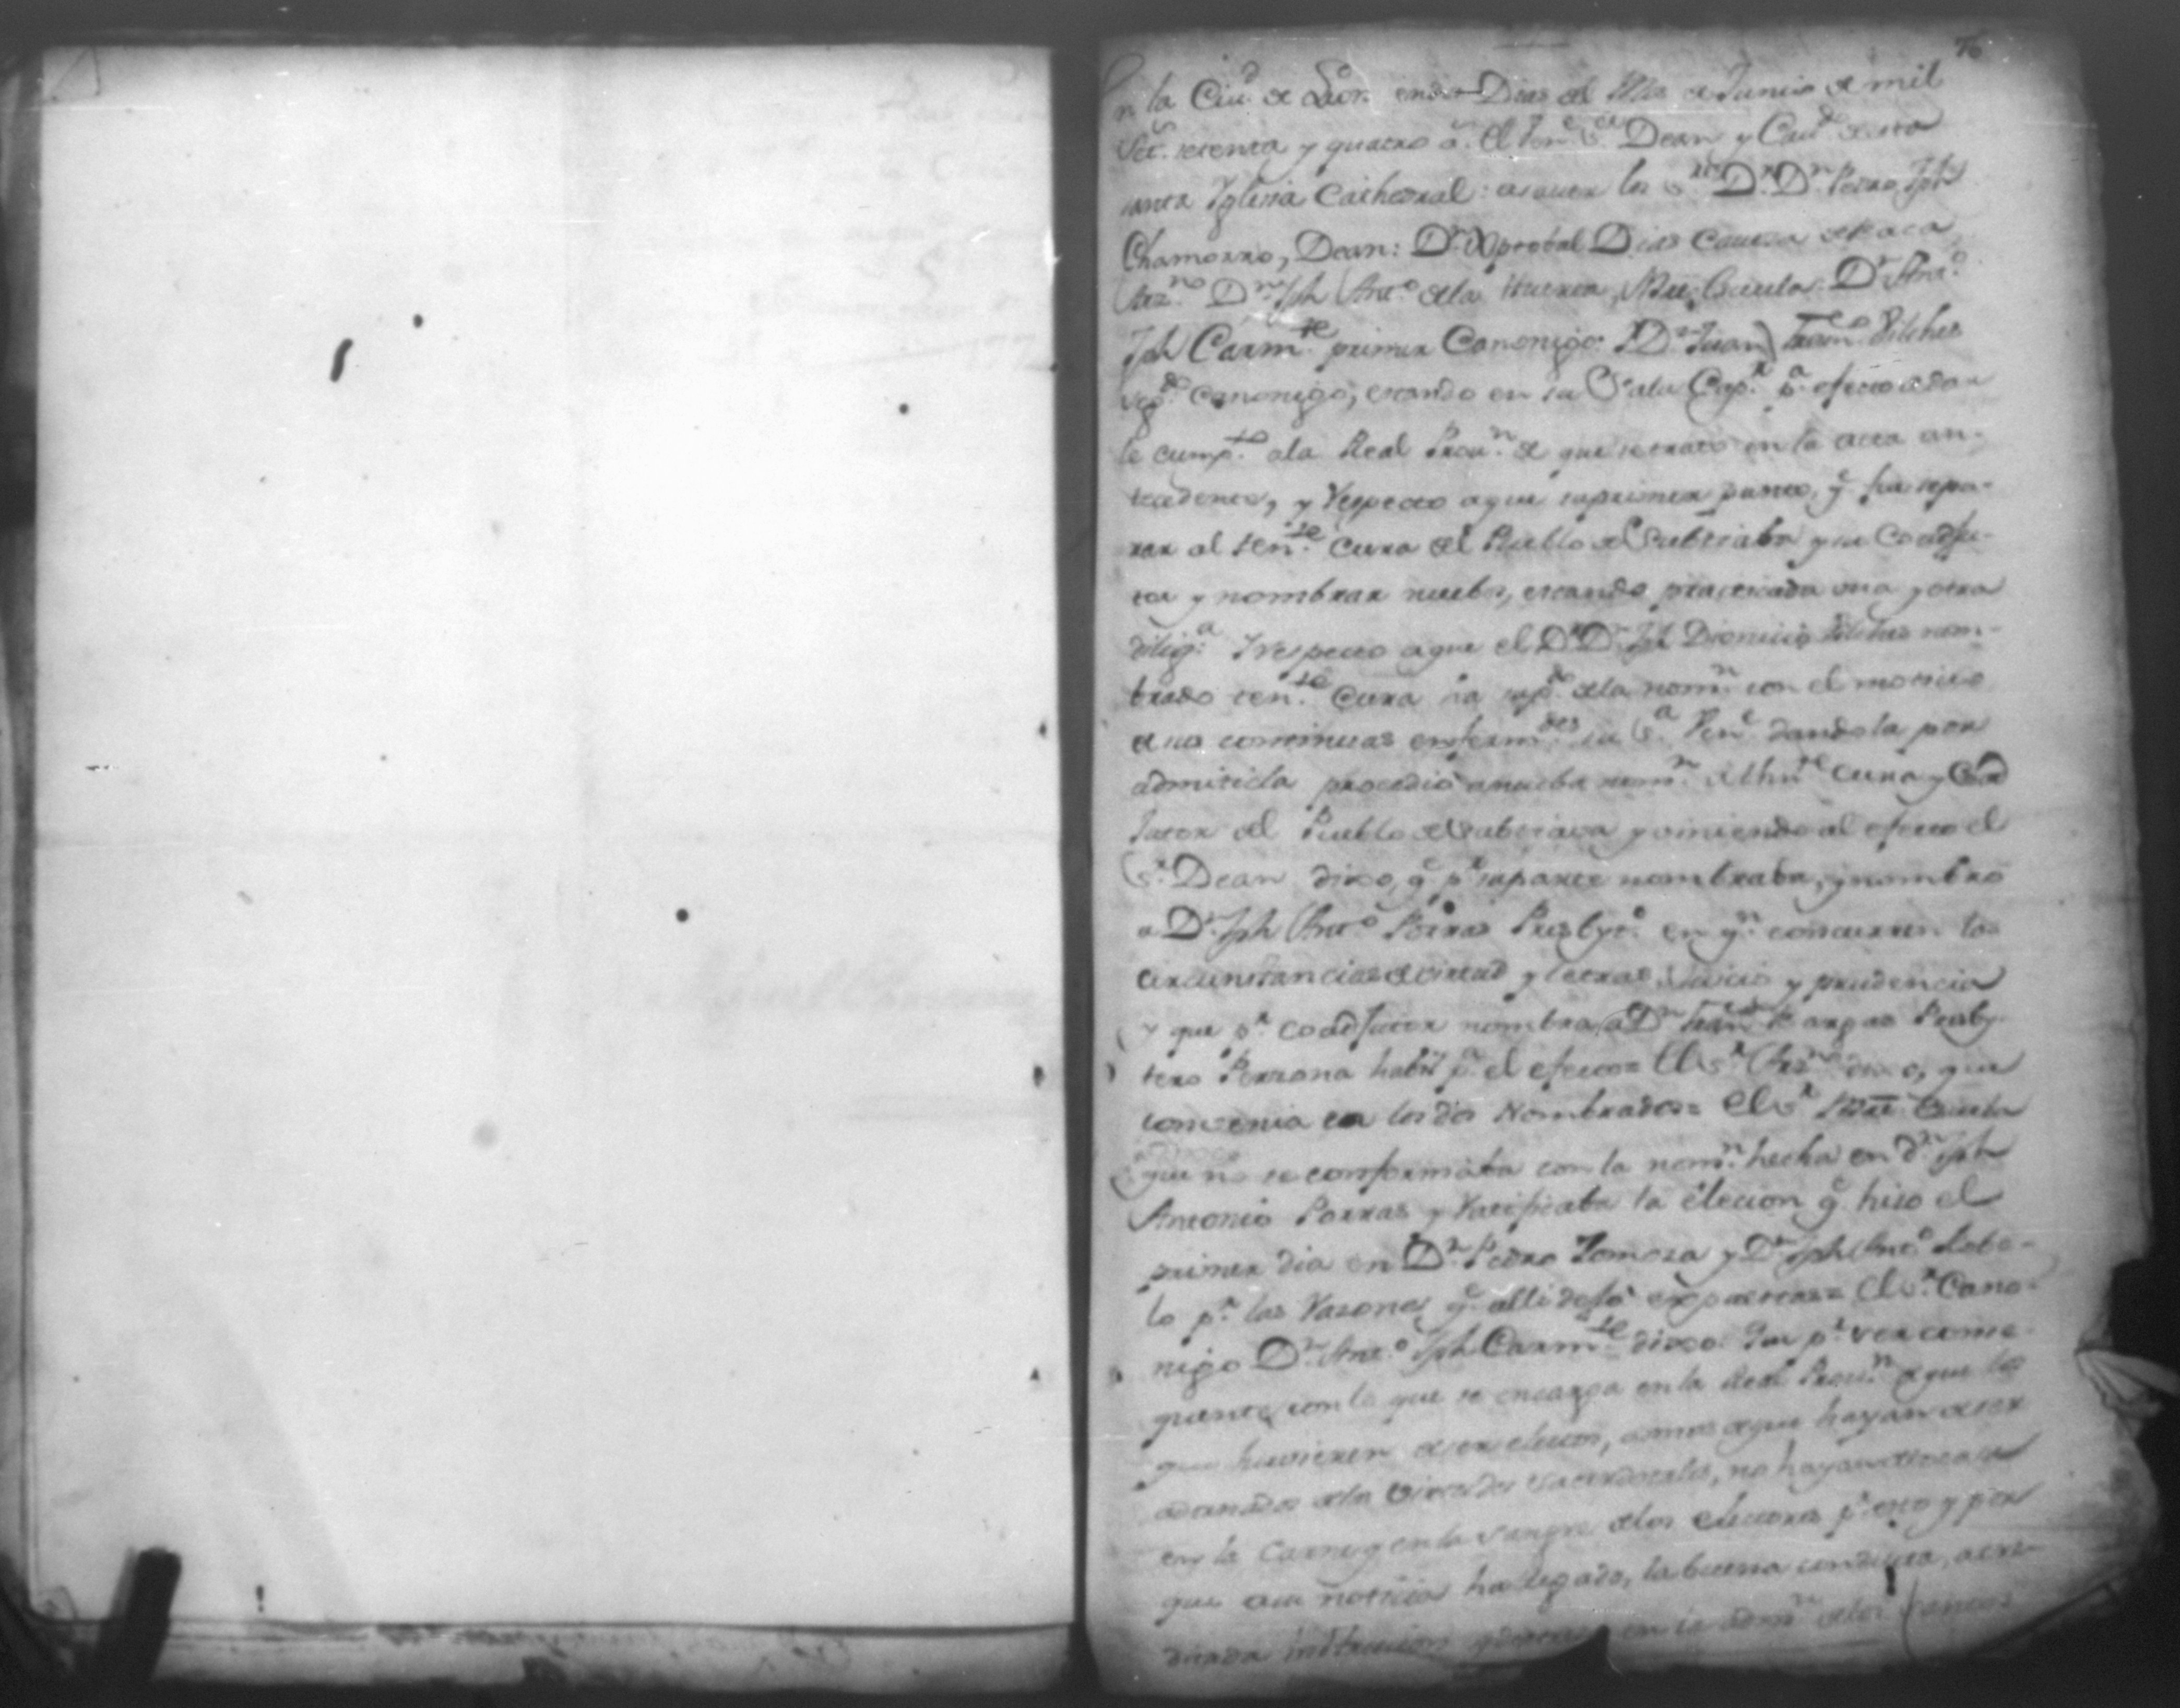 76
En la Ciu.d de Leon en dies Dias del Mes de Junio de mil
Set.s setenta y quatro a.s el Ven.e S.or Dean y Cav.do de esta
santa Iglesia Cathedral: asaver los S.res D.r D.n Pedro Jph
Chamorro, Dean: D.n Xptobal Dias Caveza de Baca
Arz.no D.n Jph Ant.o de la Huerta, Mre. Escuela D.n Ant.o
Jph Carm.te primer Canonigo: D.n Juan Fran.co Vilches
seg.do Canonigo, estando en su Sala Cap.r p.a efecto de dar
le cump.to ala Real Prov.n de que se trató en la acta an-
tecedente, y respecto aque su primer punto, q.e fue sepa-
rar al ten.te Cura del Pueblo de Subtiaba y su Coadju-
tor y nombrar nuebos, estando practicada una y otra
dilig.a Y respecto a que el D.r D.n Jph Dionicio Vilches nom-
brado ten.te Cura ha sup.do de la nom.n con el motivo
de sus continuas enferm.des su S.a Ven.e dandola por
admitida procedio a nueba nom.n de thn.te Cura y Coad
jutor del Pueblo de Subtiava y viniendo al efecto el
S.r Dean dixo, q.e p.r su parte nombraba, y nombro
a D.n Jph Ant.o Porras Presbyt.o en q.n concurren las
circunstancias de virtud y letras, Juicio y prudencia
y que p.r coadjutor nombra, a D.n Fran.co Vargas Presby-
tero Perzona habil p.a el efecto= El S.r Arz.no dixo, que
convenia en los dos Nombrados= el S.r Mre. Escuela
que no se conformaba con la nom.n hecha en D.n Jph
Antonio Porras y ratificaba la elecion q.e hizo el
primer dia en D.n Pedro Zomoza y D.n Jph Ant.o Rebo-
lo p.r las razones q.e alli dejó expuestas= El S.r Cano-
nigo D.n Ant.o Jph Carm.te dixo: Que p.r ver conse-
quente con lo que se encarga en la Real Prov.n de que los
que huvieren de ser electos, a mas de que hayan de ser
adornados de las virtudes sacerdotales, no hayan de tocar
en la Carne y en la sangre de los electores p.r esto y por
que a su noticia ha llegado, la buena conducta, acre-
ditada instruccion en la adm.n de los santos